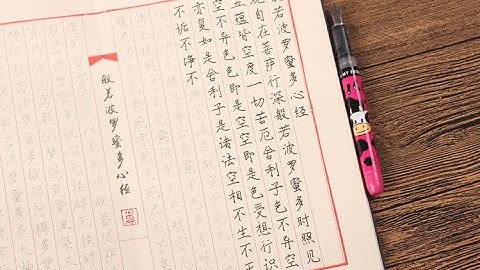 般若波罗蜜多心经
观自在菩萨行深般若波罗蜜多时照见
五蕴皆空度一切苦厄舍利子色不异空
空不异色色即是空空即是色受想行识
亦复如是舍利子是诸法空相不生不
不垢不净不
般若波罗蜜多心经